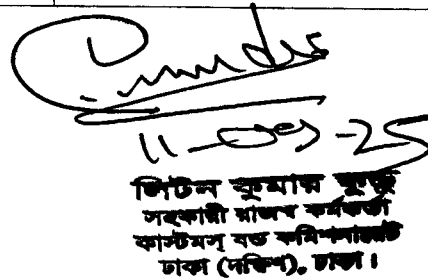 11-09-25
লিটন কুমার কুন্ডু
সহকারী রাজস্ব কর্মকর্তা
কাস্টমস্ বন্ড কমিশনারেট
ঢাকা (দক্ষিণ), ঢাকা।